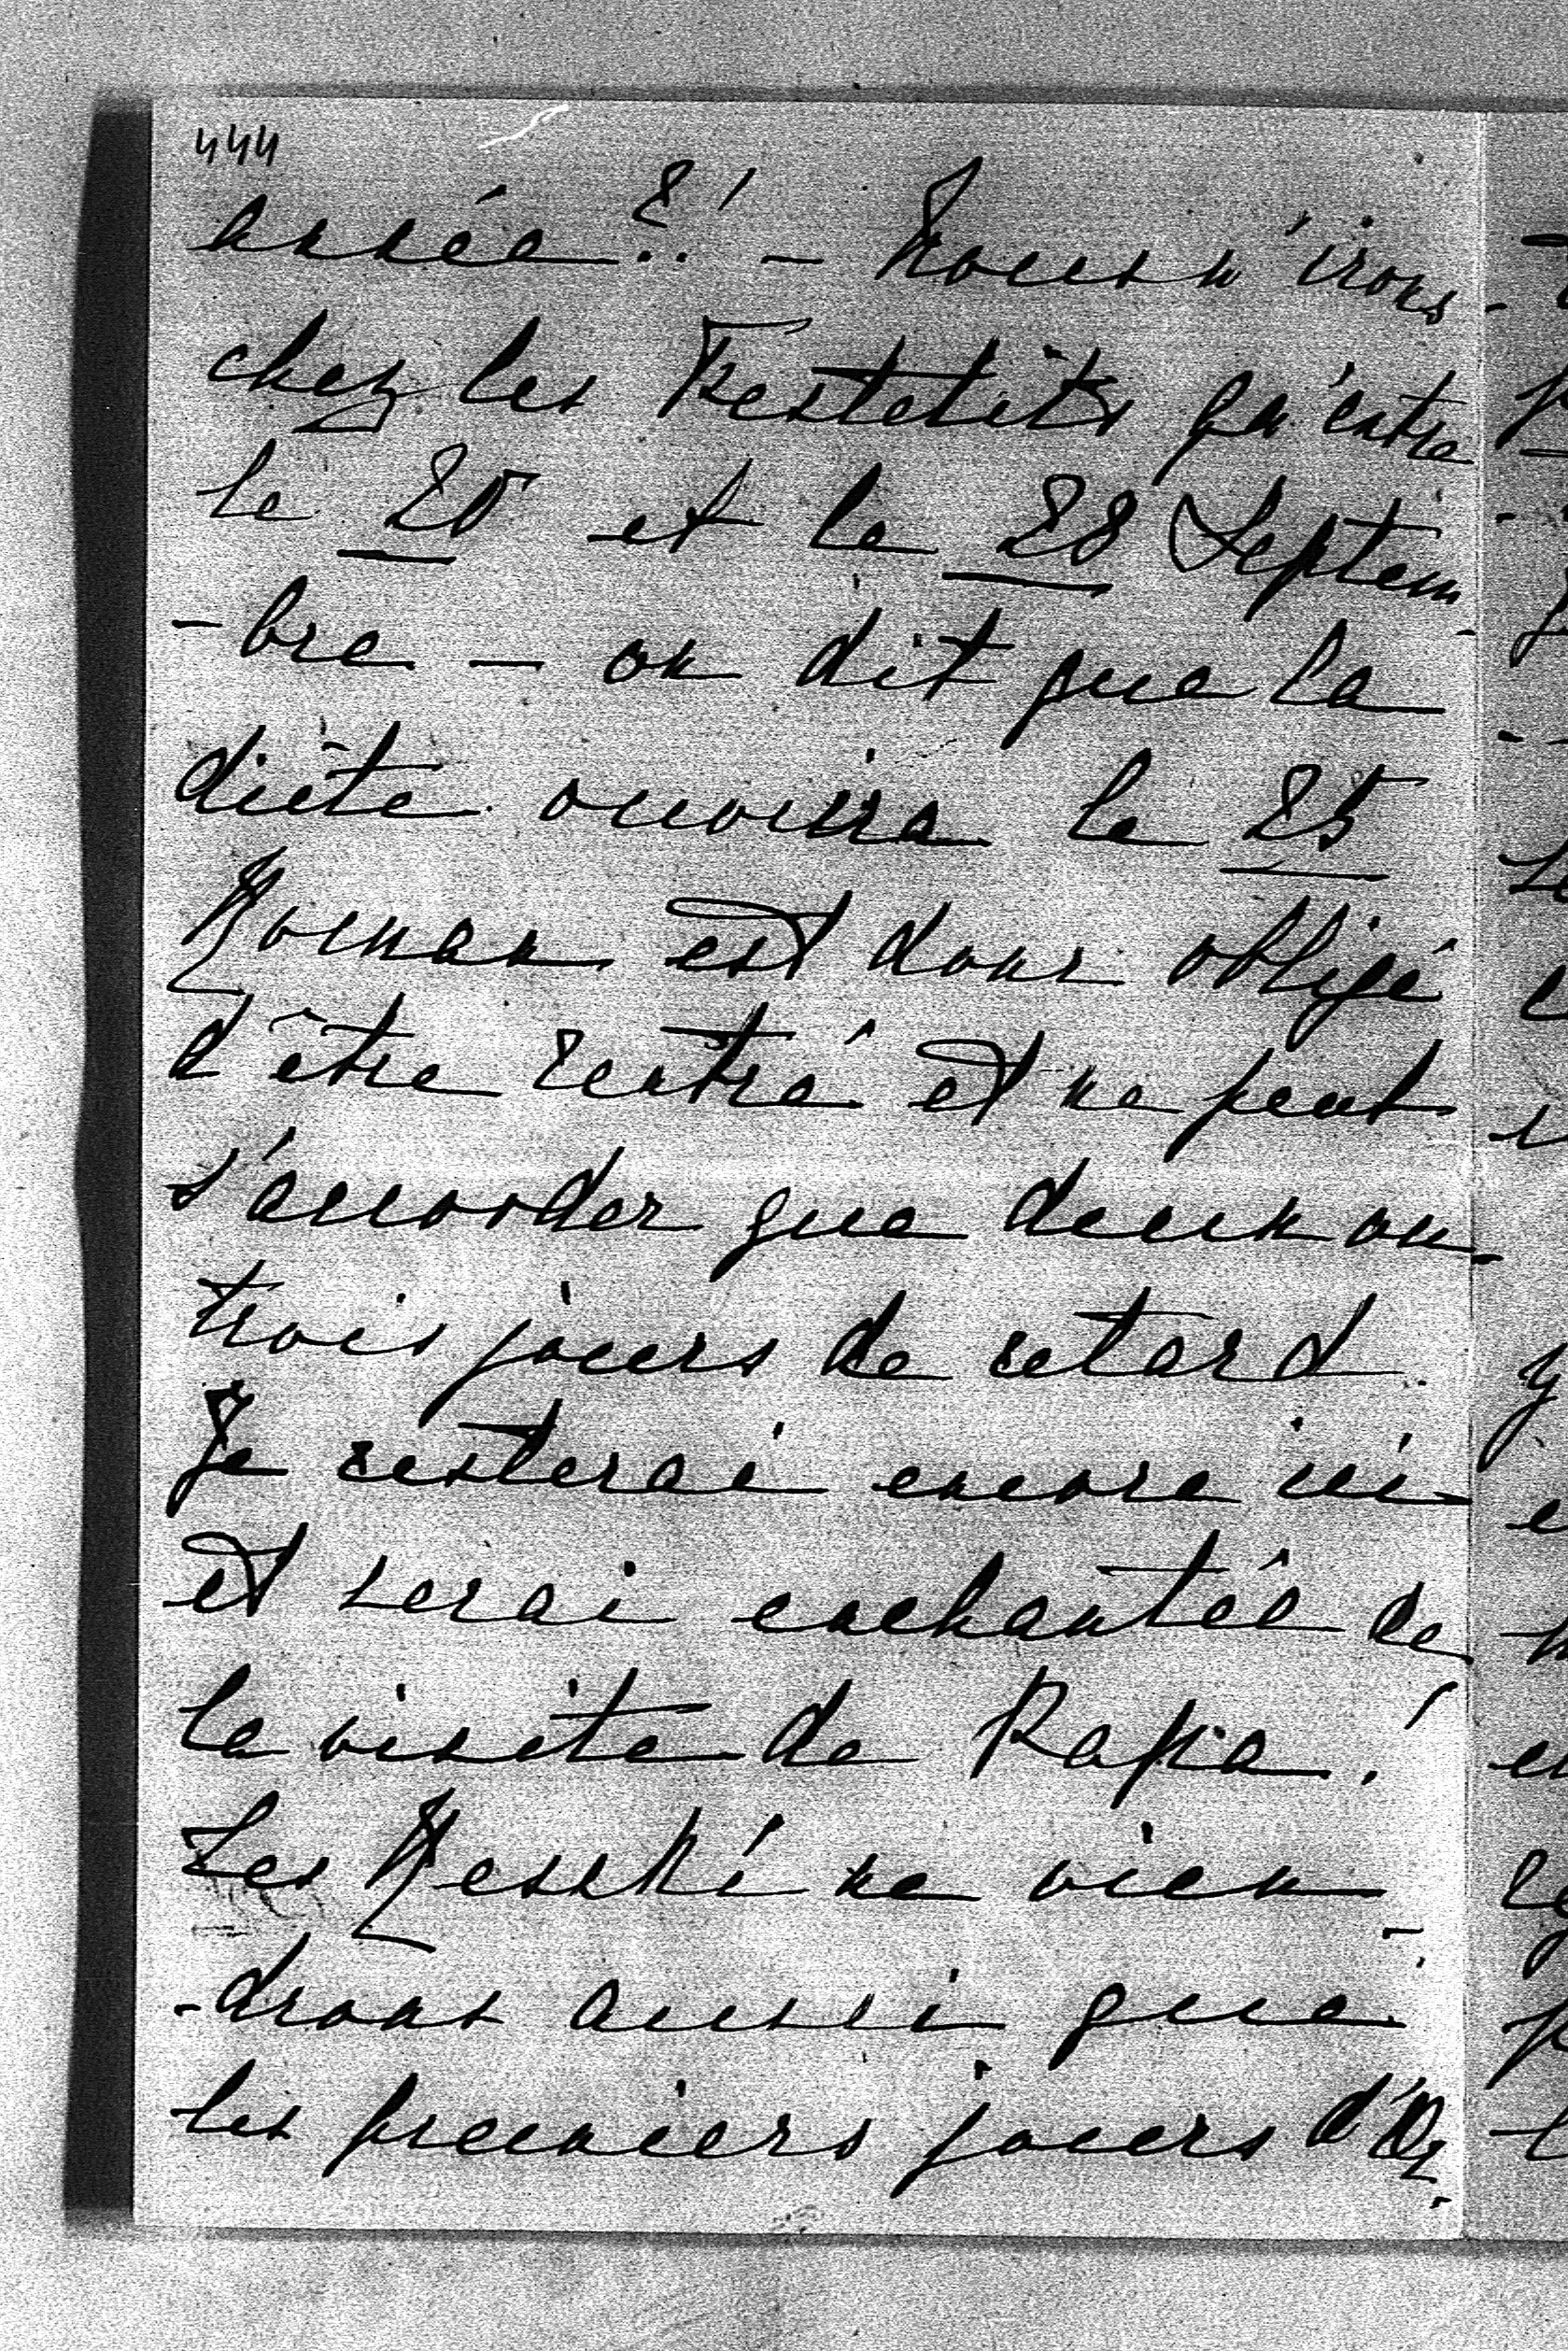 444
assée?! — Nous n'irons
chez les Festetits qu'entre
le 20 et le 28 Septem
-bre — on dit que la
diète ouvrira le 25
Roman est donc obligé
d'être rentré et ne peut
s'accorder que deux ou
trois jours de retard.
Je resterai encore ici
et serai enchantée de
la visite de Papa!
Les ne vien-
-dront aussi que
les premiers jours d'O